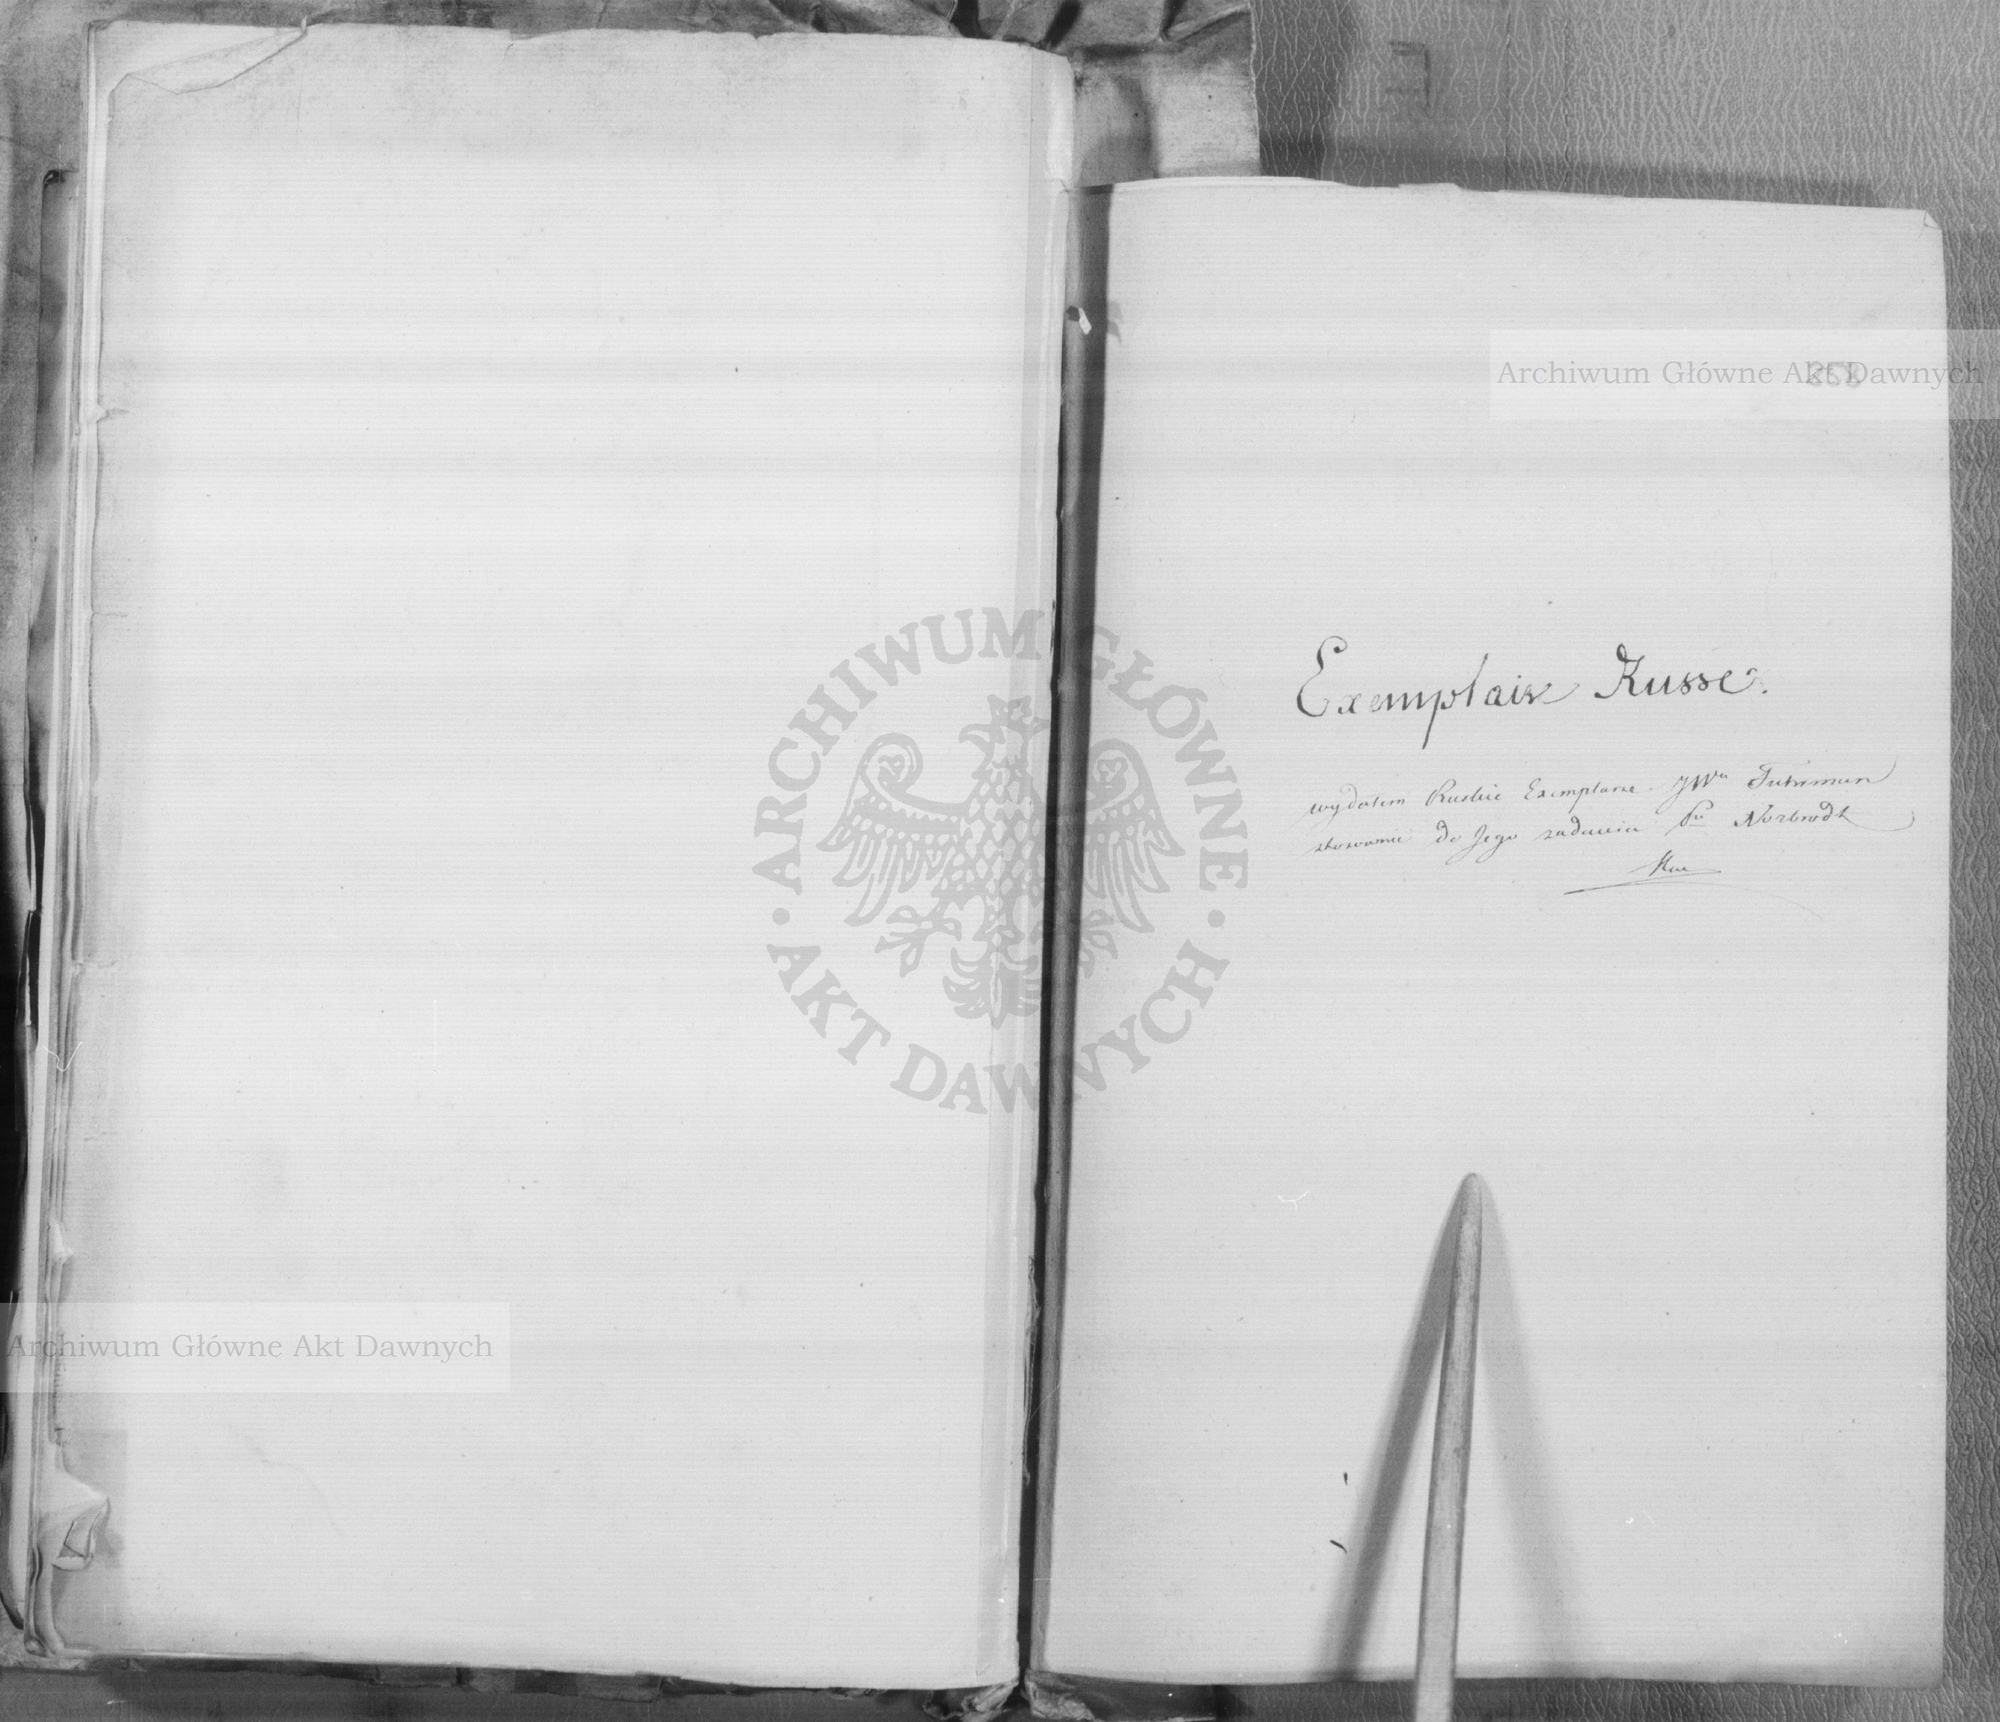 Archiwum Główne Akt Dawnych
Exemplaire Russe.
wydałem Ruskie Exemplarze JWu Fuhrman
stosownie do Jego żądania Pu Norbrodt
ARCHIWUM GŁÓWNE
· AKT DAWNYCH ·
Archiwum Główne Akt Dawnych